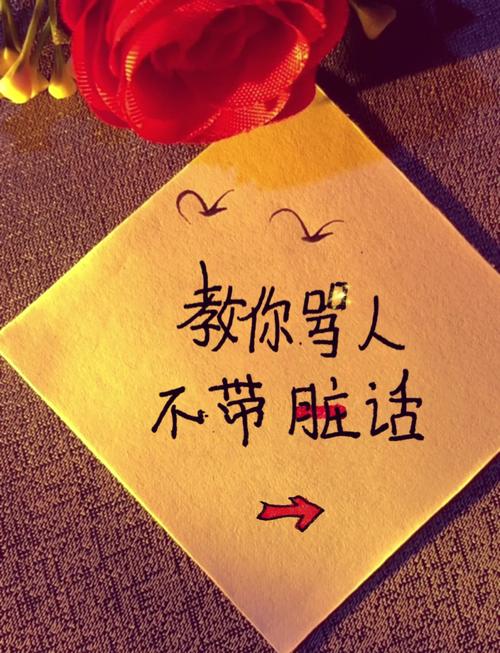 教你骂人
不带脏话